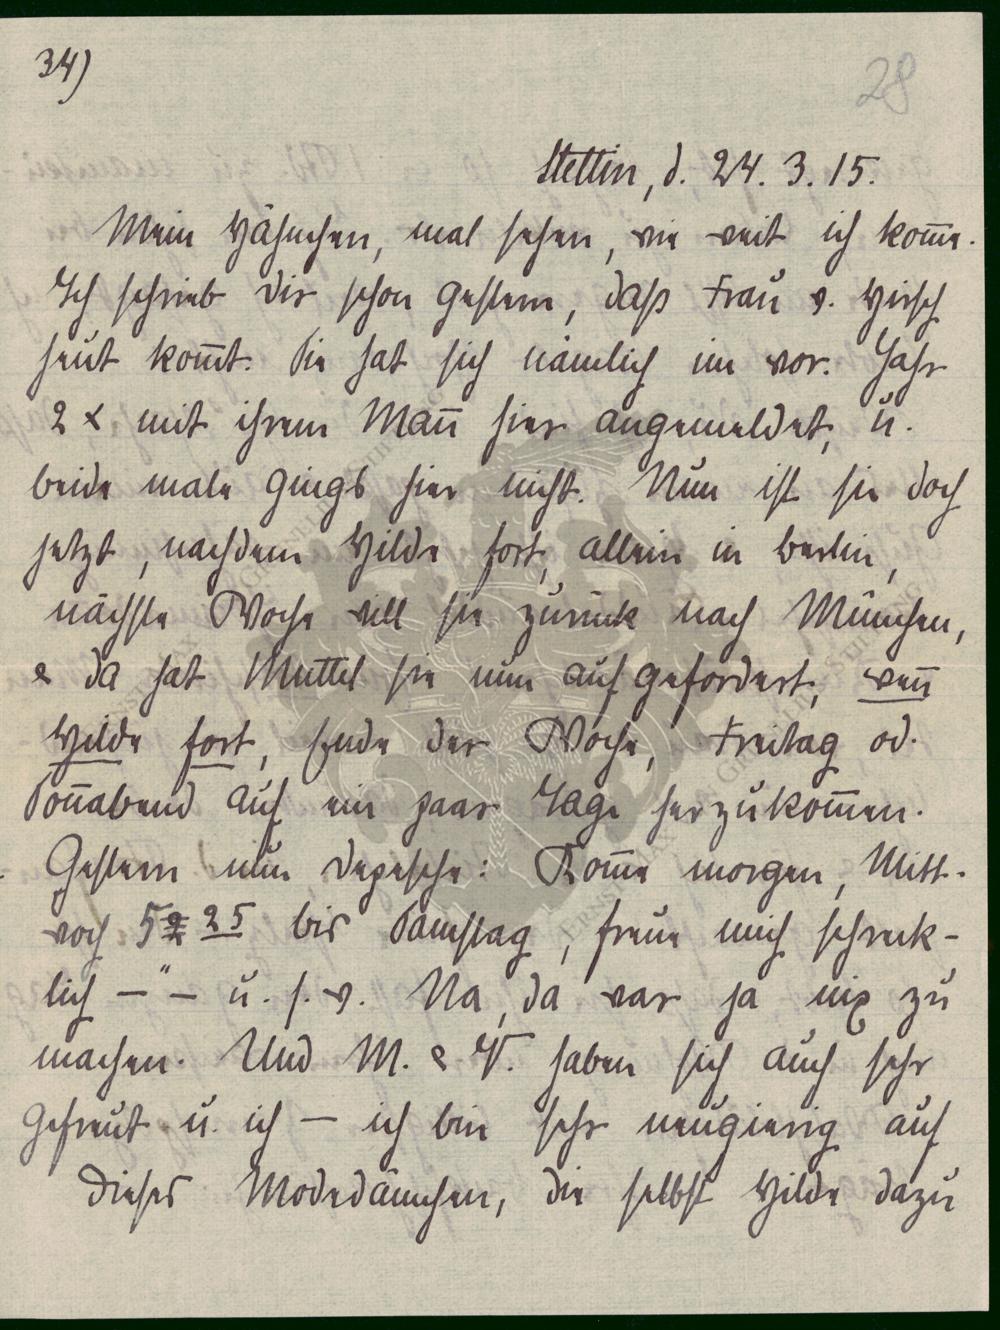 34)
28
Stettin, d. 24. 3. 15.
Mein Hähnchen, mal sehen, wie weit ich kom̅e.
Ich schrieb dir schon gestern, daß Frau v. Hirsch
heut kom̅t. Sie hat sich nämlich im vor. Jahr
2 x mit ihrem Man̅ hier angemeldet, u.
beide male gings hier nicht. Nun ist sie doch
jetzt, nachdem Hilde fort, allein in Berlin,
nächste Woche will sie zurück nach München,
& da hat Muttel sie nun aufgefordert, wen̅
Hilde fort, Ende der Woche, Freitag od.
Son̅abend auf ein paar Tage herzukom̅en.
Gestern nun Depesche: Kom̅e morgen, Mitt-
woch 5 25 bis Samstag, freue mich schreck-
lich –"– u. s. w. Na, da war ja nix zu
machen. Und M. & V. haben sich auch sehr
gefreut u. ich – ich bin sehr neugierig auf
dieses Modedämchen, die selbst Hilde dazu